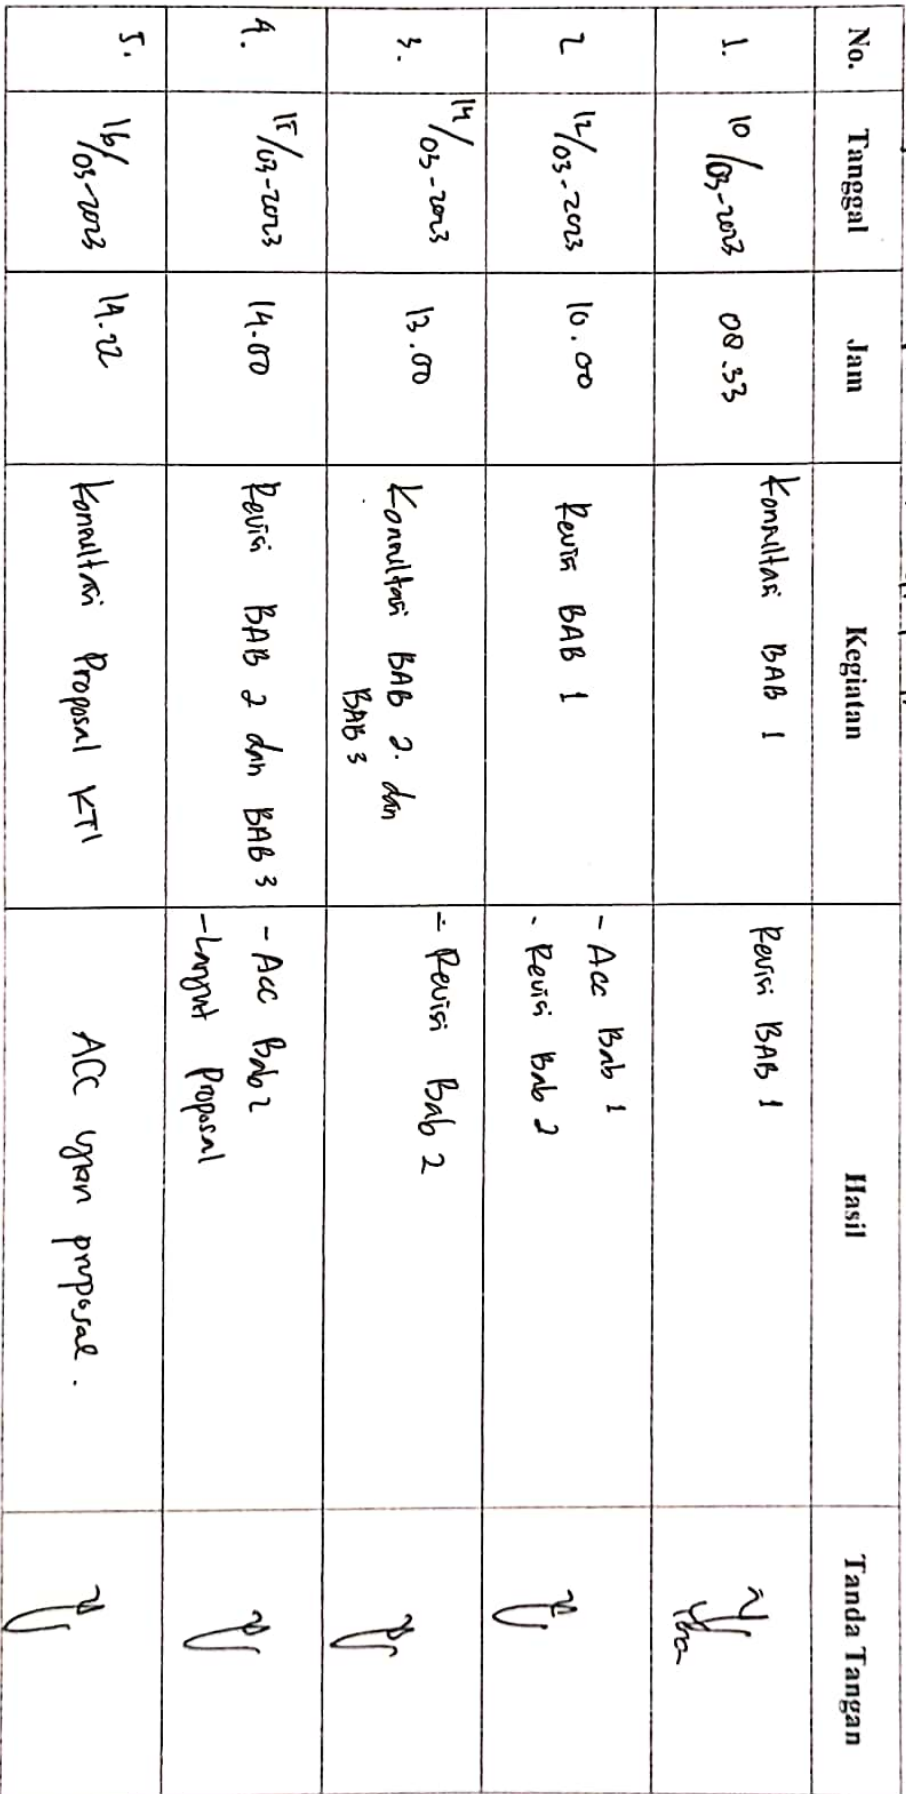 No. Tanggal Jam Kegiatan Hasil Tanda Tangan
1. 10/03-2023 08.33 Konsultasi BAB 1 Revisi BAB 1
2 12/03-2023 10.00 Revisi BAB 1 - Acc Bab 1
- Revisi Bab 2
3. 14/03-2023 13.00 Konsultasi BAB 2. dan - Revisi Bab 2
BAB 3
4. 15/03-2023 14.00 Revisi BAB 2 dan BAB 3 - Acc Bab 2
- Lanjut Proposal
5. 16/03-2023 14.22 Konsultasi Proposal KTI ACC ujian proposal.